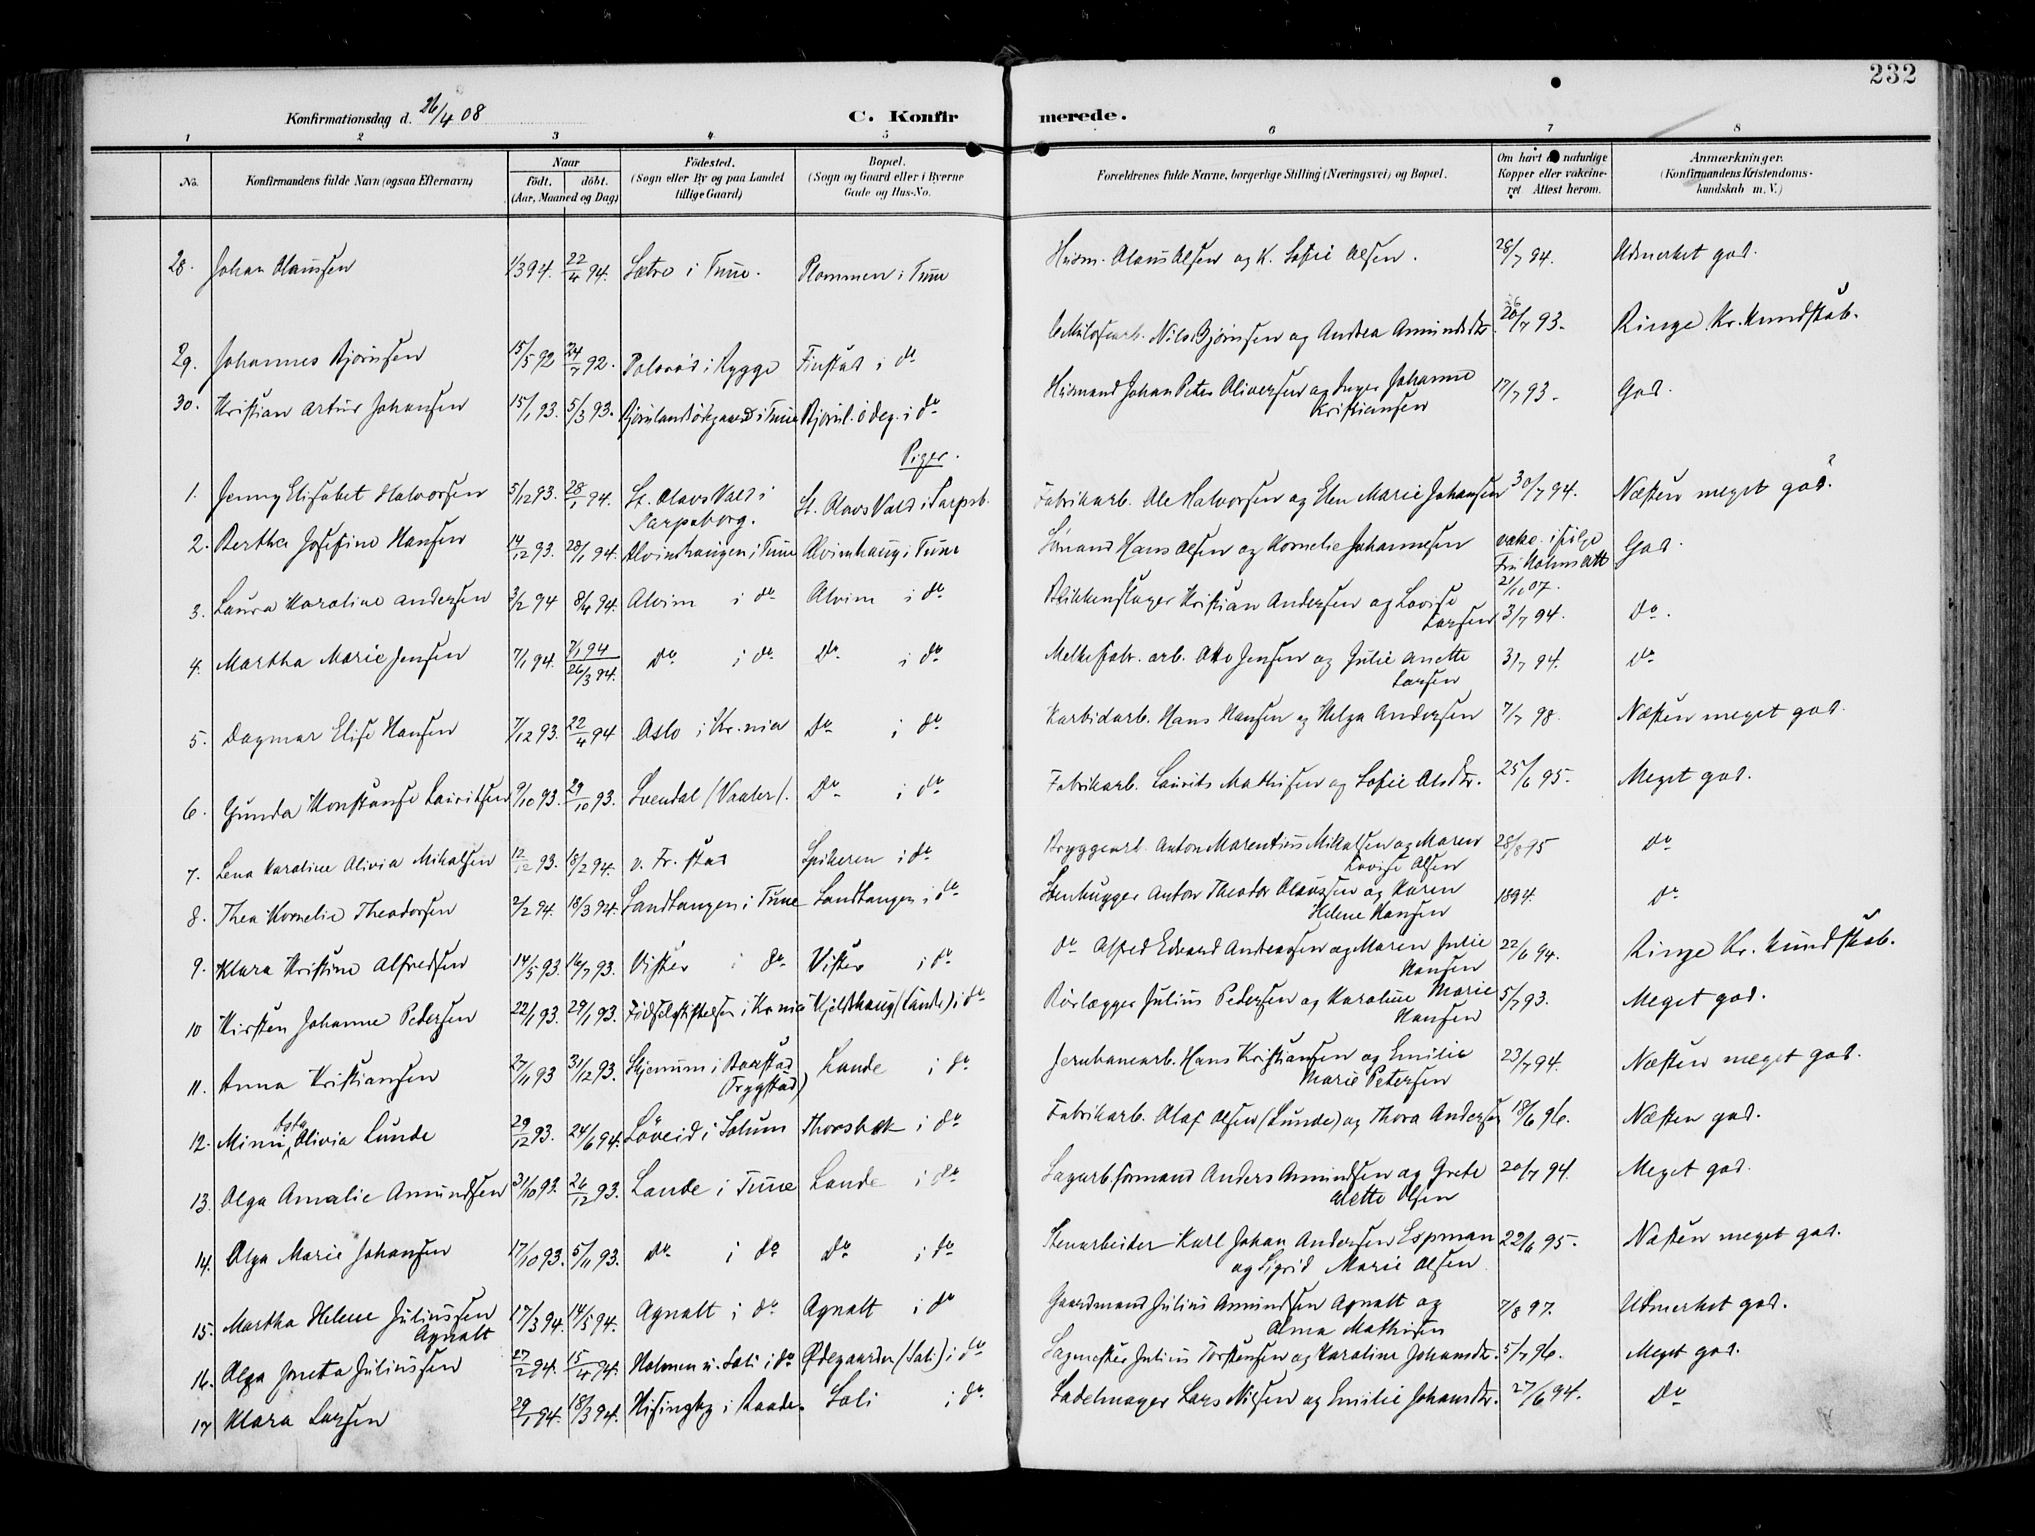 232
Konfirmationsdag d. 26/4 08
C. Konfirmerede.
1 2 3 4 5 6 7 8
No. Konfirmandens fulde Navn (ogsaa Efternavn) Naar födt. döbt. (Aar, Maaned og Dag) Födested. (Sogn eller By og paa Landet tillige Gaard) Bopæl. (Sogn og Gaard eller i Byerne Gade og Hus-No. Forældrenes fulde Navne, borgerlige Stilling (Næringsvei) og Bopæl. Om havt de naturlige Kopper eller vakcineret. Attest herom. Anmærkninger. (Konfirmandens Kristendomskundskab m. V.)
28. Johan Olaussen 1/3 94. 22/4 94. Sætre i Tune. Plommen i Tune Husm. Olaus Olsen og K. Sofie Olsen. 28/7 94. Udmerket god.
29. Johannes Bjørnsen 15/5 92 24/7 92. i Rygge Finstad i do Nils Bjørnsen og Andrea Amundsdr. 26/7 93. Ringe Kr. Kundskab.
30. Kristian Artur Johansen 15/1 93. 5/3 93. Bjørnlandødegaard i Tune Bjørnl. ødeg. i do Husmand Johan Peter Oliversen og Inger Johanne Kristiansen 17/7 93. God.
Piger.
1. Jenny Elisabet Halvorsen 5/12 93. 28/1 94. St. Olavs Vold i Sarpsborg. St. Olavs Vold i Sarpsb. Fabrikarb. Ole Halvorsen og Elen Marie Johansen 30/7 94. Næsten meget god.
2. Bertha Josefine Hansen 14/12 93. 28/1 94. Alvimhaugen i Tune Alvimhaug i Tune Hans Olsen og Kornelie Johannesen vakc. ifølge Holms Att 21/11 07. God.
3. Laura Karoline Andersen 3/2 94 8/4 94. Alvim i do Alvim i do Blikkenslager Kristian Andersen og Lovise Larsen 3/7 94. do.
4. Martha Marie Jensen 7/1 94. 7/1 94 26/3 94. do i do do i do Melkefabr. arb. Otto Jensen og Julie Anette Larsen 31/7 94. do
5. Dagmar Elise Hansen 7/12 93. 22/4 94 Oslo i Kr.nia do i do Karbidarb. Hans Hansen og Helga Andersen 7/7 98. Næsten meget god.
6. Gunda Konstanse Lauritsen 9/10 93. 29/10 93. Svendal (Vaaler). do i do Fabrikarb. Laurits Mathisen og Sofie Olsdtr. 25/6 95. Meget god.
7. Lena Karoline Olivia Mikalsen 12/12 93. 18/2 94. v. Fr.stad Spikeren i do Bryggearb. Anton Marentius Mikalsen og Maren Lovise Olsen 28/8 95 do
8. Thea Kornelie Theodorsen 2/2 94. 18/3 94. Sandtangen i Tune Sandtangen i do Stenhugger Anton Theodor Olaussen og Karen Helene Hansen 1894. do
9. Klara Kristine Alfredsen 14/5 93. 16/7 93. Vister i do Vister i do do Alfred Edvard Andreassen og Maren Julie Hansen 22/6 94. Ringe Kr. Kundskab.
10 Kirsten Johanne Pedersen 22/1 93. 29/1 93. Fødselsstiftelsen i Kr.nia Kjeldshaug (Lande) i do Rørlægger Julius Pedersen og Karoline Marie Hansen 5/7 93. Meget god.
11. Anna Kristiansen 27/11 93 31/12 93. Skjennum i Baastad (Trygstad) Lande i do Jernbanearb. Hans Kristiansen og Emilie Marie Petersen 23/7 94. Næsten meget god.
12. Minni Asta Olivia Lunde 29/12 93. 24/6 94. Löveid i Solum Thorsbæk i do Fabrikarb. Olaf Olsen (Lunde) og Thora Andersen 18/6 96. Næsten god.
13. Olga Amalie Amundsen 31/10 93. 26/12 93. Lande i Tune Lande i do Sagarb.formand Anders Amundsen og Grete Olsen 20/7 94. Meget god.
14. Olga Marie Johansen 17/10 93. 5/11 93. do i do do i do Stenarbeider Karl Johan Andersen Espman og Sigrid Marie Olsen 22/6 95. Næsten meget god.
15. Martha Helene Juliussen Agnalt 17/3 94. 14/5 94. Agnalt i do Agnalt i do Gaardmand Julius Amundsen Agnalt og Alma Mathisen 7/8 97. Udmerket god.
16. Olga Juliussen 27/2 94. 15/4 94. Holmen u. Soli i do Ødegaarden (Soli) i do Sagmester Julius Torstensen og Karoline Johansdtr. 5/7 96. Meget god.
17 Klara Larsen 29/1 94. 18/3 94. i Raade. Soli i do Sadelmager Lars Nilsen og Emilie Johansdtr. 27/6 94. do